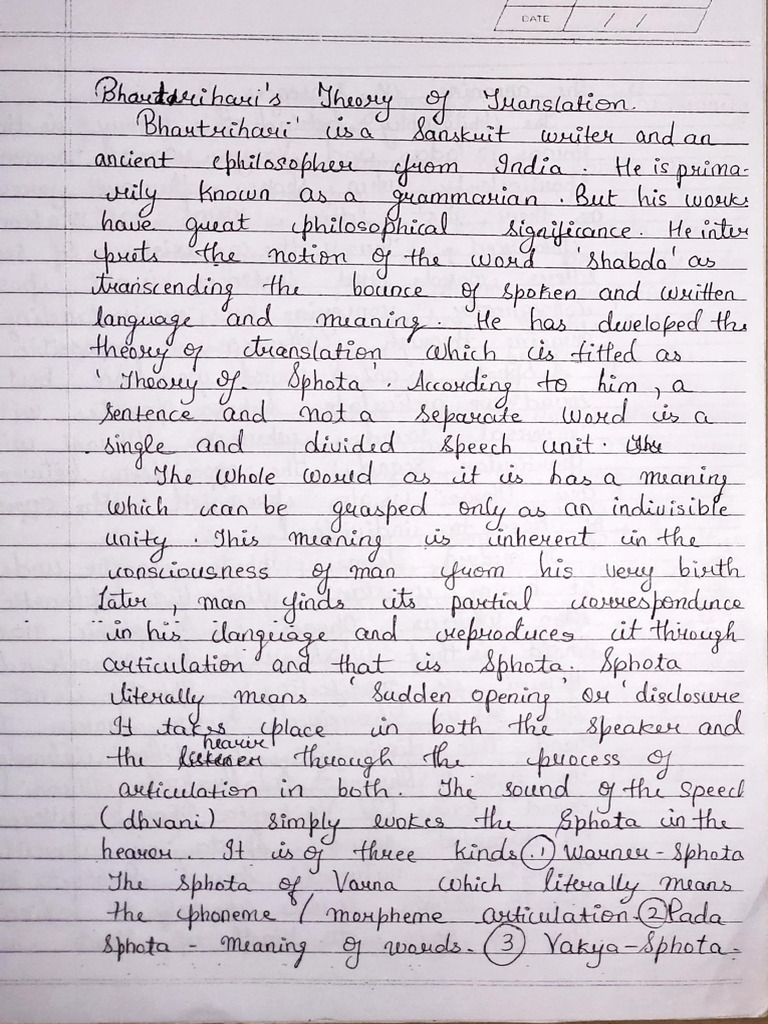 DATE / /
Bhartrihari's Theory of Translation.
'Bhartrihari' is a Sanskrit writer and an
ancient philosopher from India. He is prima-
rily known as a grammarian. But his works
have great philosophical significance. He inter
prets the notion of the word 'shabda' as
transcending the bounce of spoken and written
language and meaning. He has developed the
theory of translation which is titled as
'Theory of Sphota'. According to him, a
sentence and not a separate word is a
single and divided speech unit.
The whole world as it is has a meaning
which can be grasped only as an indivisible
unity. This meaning is inherent in the
consciousness of man from his very birth
Later, man finds its partial correspondence
in his language and reproduces it through
articulation and that is Sphota. Sphota
literally means 'Sudden opening' or 'disclosure
It takes place in both the speaker and
the hearer through the process of
articulation in both. The sound of the speech
(dhvani) simply evokes the Sphota in the
hearer. It is of three kinds (1) Warner-Sphota
The Sphota of Varna which literally means
the phoneme / morpheme articulation. (2) Pada
Sphota - Meaning of words. (3) Vakya-Sphota-